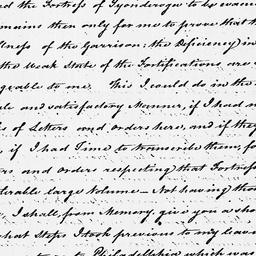 ed the Fortress of Tyconderoga to be evacu
mains then only for me to prove that th
ness of the Garrison; the Deficiency in
the Weak State of the Fortifications are
geable to me. This I could do in the
le and satisfactory Manner, if I had m
s of Letters and orders here, and if they
if I had Time to transcribe them, for
rs and orders respecting that Fortress
derable large Volume — Not having tho
I shall, from Memory, give you a sho
what Steps I took previous to my leav
to Philadelphia which was